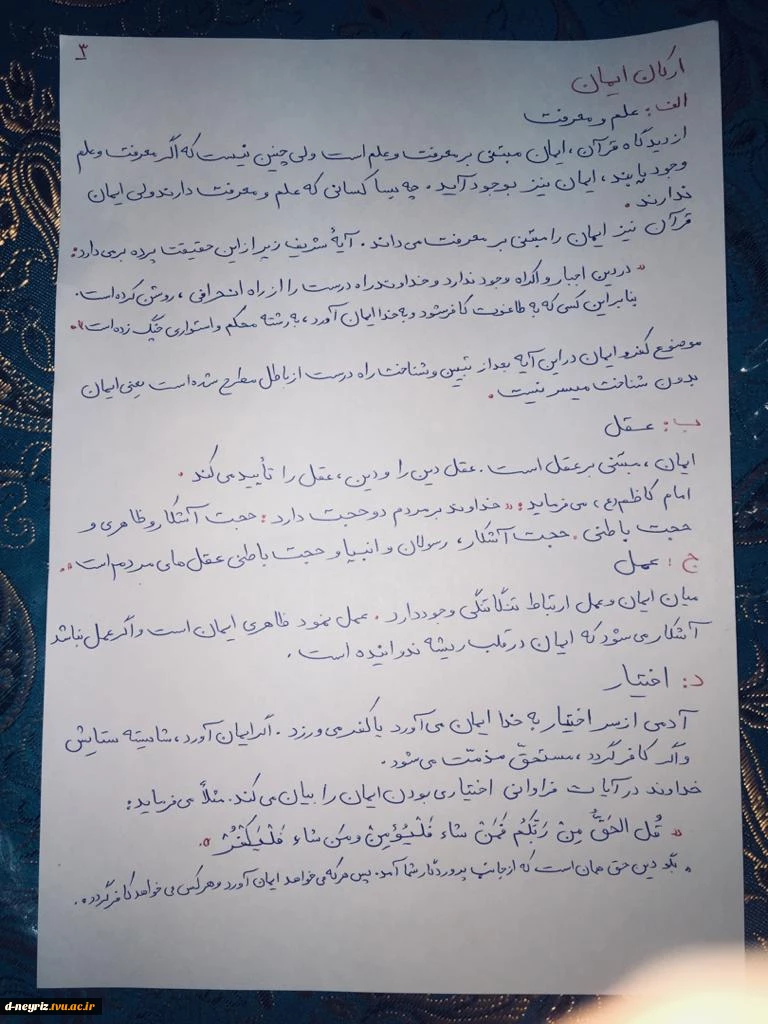 ۳
ارکان ایمان
الف: علم و معرفت
از دیدگاه قرآن، ایمان مبتنی بر معرفت و علم است ولی چنین نیست که اگر معرفت و علم
وجود یابند، ایمان نیز بوجود آید. چه بسا کسانی که علم و معرفت دارند ولی ایمان
ندارند.
قرآن نیز ایمان را مبتنی بر معرفت می داند. آیۀ شریف زیر از این حقیقت پرده برمی دارد:
« در دین اجبار و اکراه وجود ندارد و خداوند راه درست را از راه انحرافی، روشن کرده است.
بنابراین کسی که به طاغوت کافر شود و به خدا ایمان آورد، به رشته محکم و استواری چنگ زده است».
موضوع کفر و ایمان در این آیه بعد از تبیین و شناخت راه درست از باطل مطرح شده است یعنی ایمان
بدون شناخت میسر نیست.
ب: عقل
ایمان، مبتنی بر عقل است. عقل دین را و دین، عقل را تأیید می کند.
امام کاظم(ع) می فرماید: « خداوند بر مردم دو حجت دارد: حجت آشکار و ظاهری و
حجت باطنی. حجت آشکار، رسولان و انبیا و حجت باطنی عقل های مردم است».
ج: عمل
میان ایمان و عمل ارتباط تنگاتنگی وجود دارد. عمل نمود ظاهری ایمان است و اگر عمل نباشد
آشکار می شود که ایمان در قلب ریشه ندوانیده است.
د: اختیار
آدمی از سر اختیار به خدا ایمان می آورد یا کفر می ورزد. اگر ایمان آورد، شایسته ستایش
و اگر کافر گردد، مستحقّ مذمّت می شود.
خداوند در آیات فراوانی اختیاری بودن ایمان را بیان می کند. مثلاً می فرماید:
« قُل الحَقُّ مِنْ رَبِّکُم فَمَنْ شاء فَلْیُؤمِنْ و مَن شاء فَلْیَکْفُرْ».
« بگو دین حق همان است که از جانب پروردگار شما آمد. پس هر که می خواهد ایمان آورد و هر کس می خواهد کافر گردد».
d-neyriz.tvu.ac.ir